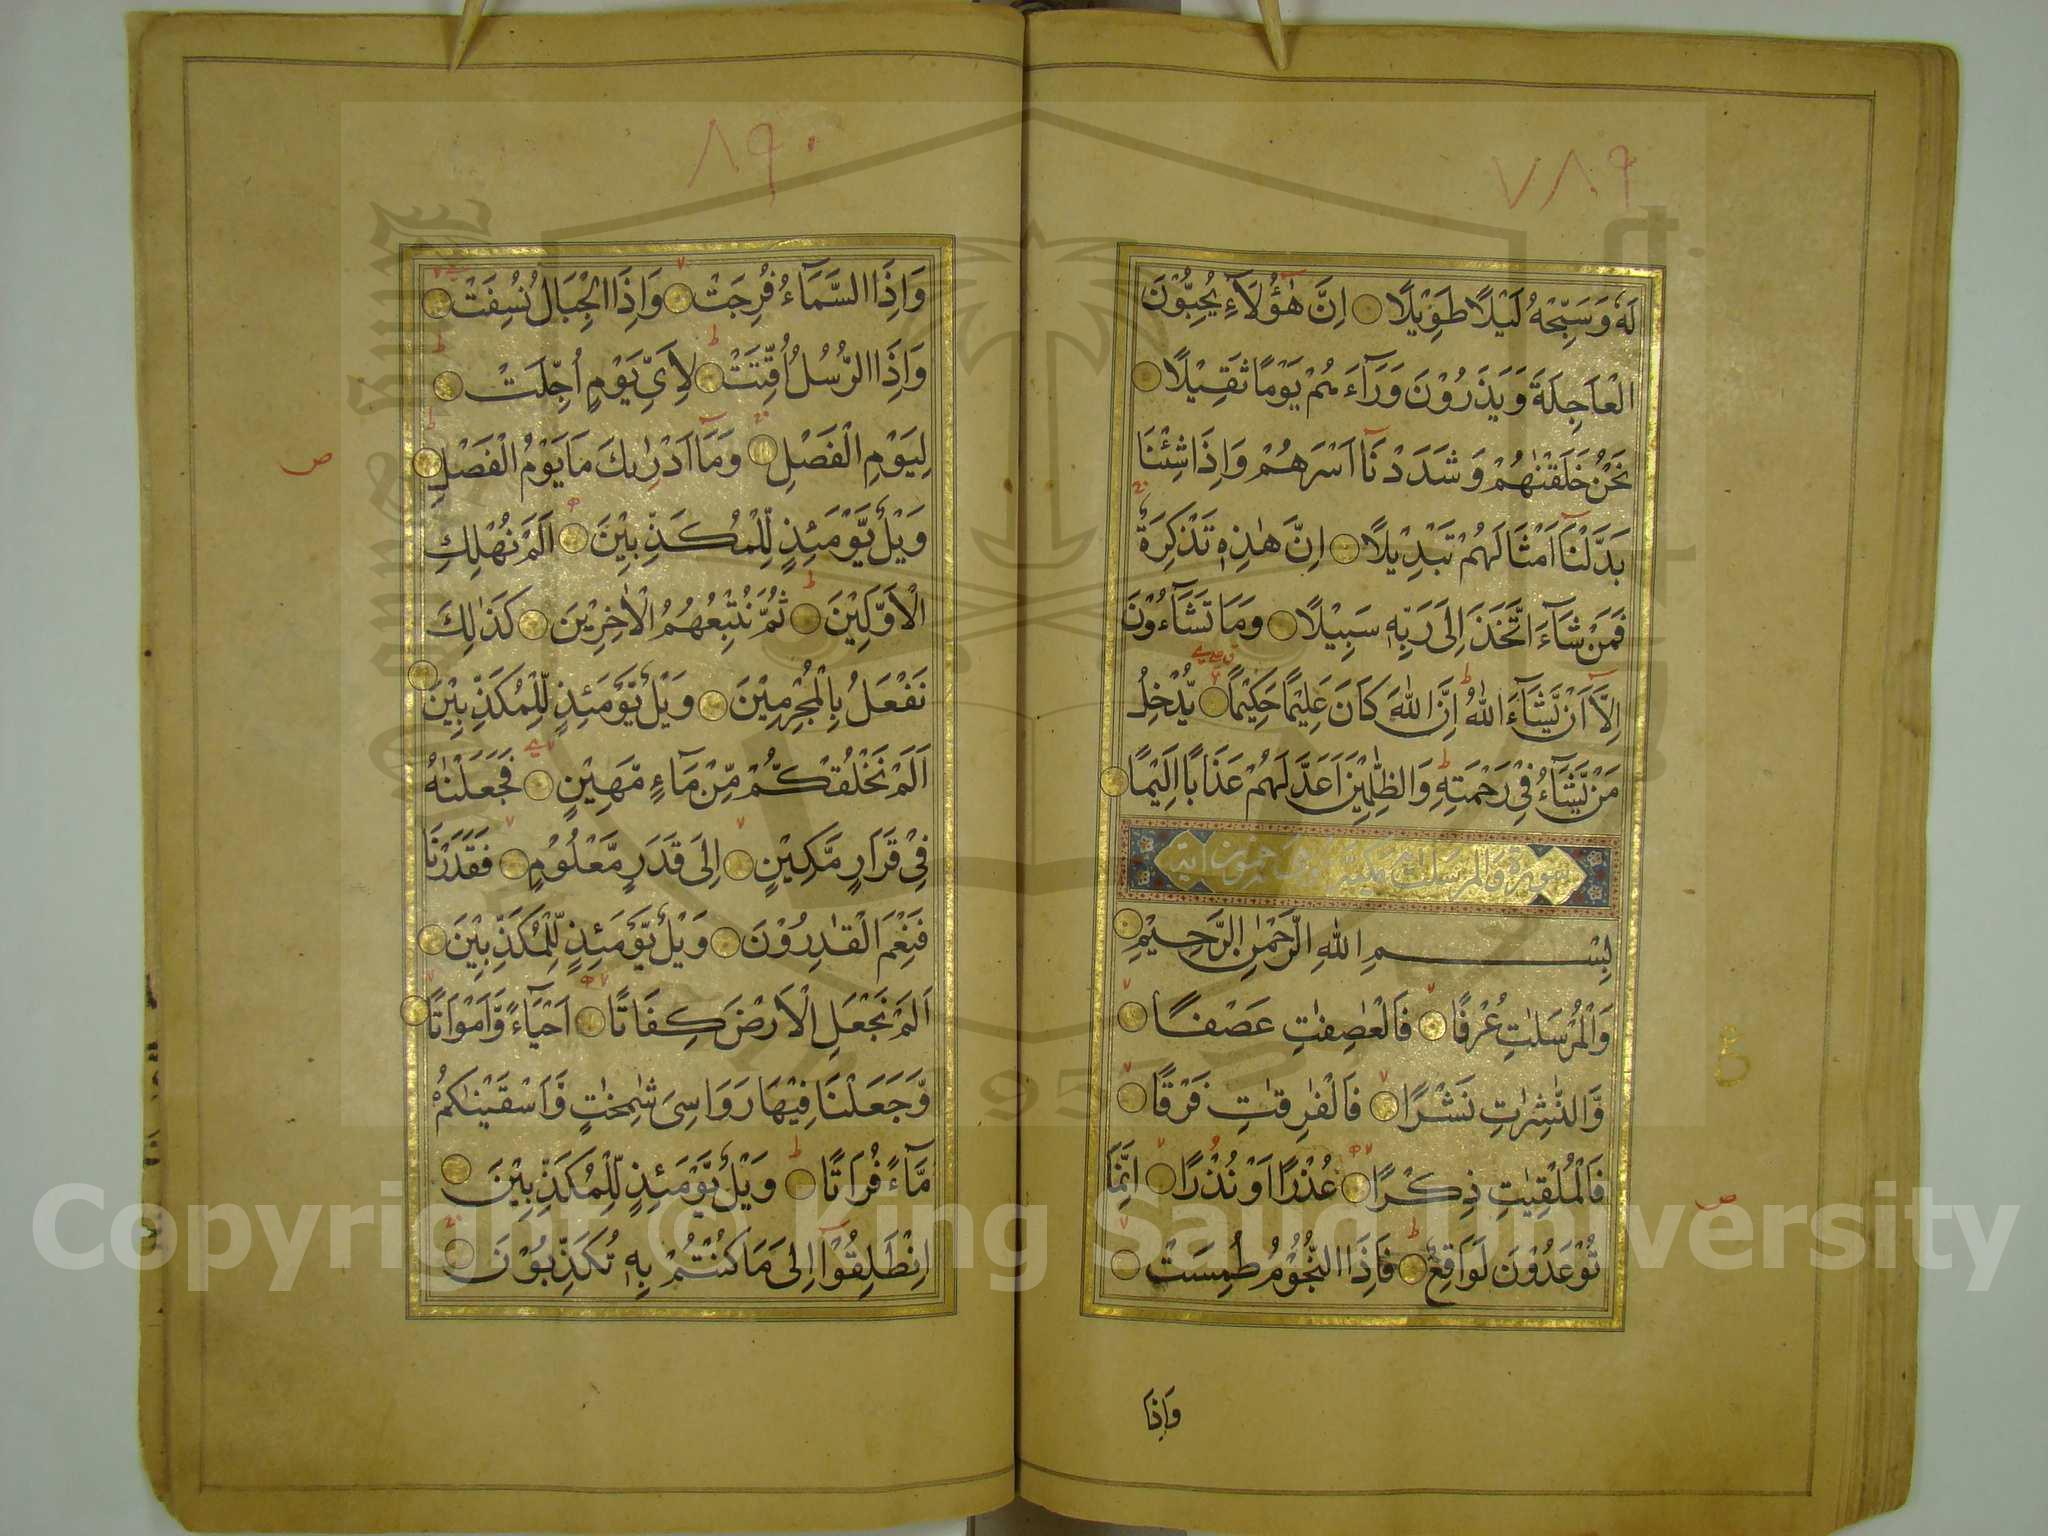 ٧٨٩
لَهٗ وَسَبِّحْهُ لَيْلًا طَوِيْلًا اِنَّ هٰٓؤُلَآءِ يُحِبُّوْنَ
الْعَاجِلَةَ وَيَذَرُوْنَ وَرَآءَهُمْ يَوْمًا ثَقِيْلًا
نَحْنُ خَلَقْنٰهُمْ وَشَدَدْنَآ اَسْرَهُمْ وَاِذَا شِئْنَا
بَدَّلْنَآ اَمْثَالَهُمْ تَبْدِيْلًا اِنَّ هٰذِهٖ تَذْكِرَةٌ
فَمَنْ شَآءَ اتَّخَذَ اِلٰى رَبِّهٖ سَبِيْلًا وَمَا تَشَآءُوْنَ
اِلَّآ اَنْ يَّشَآءَ اللّٰهُ اِنَّ اللّٰهَ كَانَ عَلِيْمًا حَكِيْمًا يُّدْخِلُ
مَنْ يَّشَآءُ فِيْ رَحْمَتِهٖ وَالظّٰلِمِيْنَ اَعَدَّ لَهُمْ عَذَابًا اَلِيْمًا
سورة والمرسلات مكية وهى خمسون اية
بِسْمِ اللّٰهِ الرَّحْمٰنِ الرَّحِيْمِ
وَالْمُرْسَلٰتِ عُرْفًا فَالْعٰصِفٰتِ عَصْفًا
وَّالنّٰشِرٰتِ نَشْرًا فَالْفٰرِقٰتِ فَرْقًا
فَالْمُلْقِيٰتِ ذِكْرًا عُذْرًا اَوْ نُذْرًا اِنَّمَا
تُوْعَدُوْنَ لَوَاقِعٌ فَاِذَا النُّجُوْمُ طُمِسَتْ
ص
وَاِذَا
٨٩٠
وَاِذَا السَّمَآءُ فُرِجَتْ وَاِذَا الْجِبَالُ نُسِفَتْ
وَاِذَا الرُّسُلُ اُقِّتَتْ لِاَيِّ يَوْمٍ اُجِّلَتْ
لِيَوْمِ الْفَصْلِ وَمَآ اَدْرٰىكَ مَا يَوْمُ الْفَصْلِ
ص
وَيْلٌ يَّوْمَئِذٍ لِّلْمُكَذِّبِيْنَ اَلَمْ نُهْلِكِ
الْاَوَّلِيْنَ ثُمَّ نُتْبِعُهُمُ الْاٰخِرِيْنَ كَذٰلِكَ
نَفْعَلُ بِالْمُجْرِمِيْنَ وَيْلٌ يَّوْمَئِذٍ لِّلْمُكَذِّبِيْنَ
اَلَمْ نَخْلُقْكُّمْ مِّنْ مَّآءٍ مَّهِيْنٍ فَجَعَلْنٰهُ
فِيْ قَرَارٍ مَّكِيْنٍ اِلٰى قَدَرٍ مَّعْلُوْمٍ فَقَدَرْنَا
فَنِعْمَ الْقٰدِرُوْنَ وَيْلٌ يَّوْمَئِذٍ لِّلْمُكَذِّبِيْنَ
اَلَمْ نَجْعَلِ الْاَرْضَ كِفَاتًا اَحْيَآءً وَّاَمْوَاتًا
وَّجَعَلْنَا فِيْهَا رَوَاسِيَ شٰمِخٰتٍ وَّاَسْقَيْنٰكُمْ
مَّآءً فُرَاتًا وَيْلٌ يَّوْمَئِذٍ لِّلْمُكَذِّبِيْنَ
اِنْطَلِقُوْٓا اِلٰى مَا كُنْتُمْ بِهٖ تُكَذِّبُوْنَ
Copyright © King Saud University